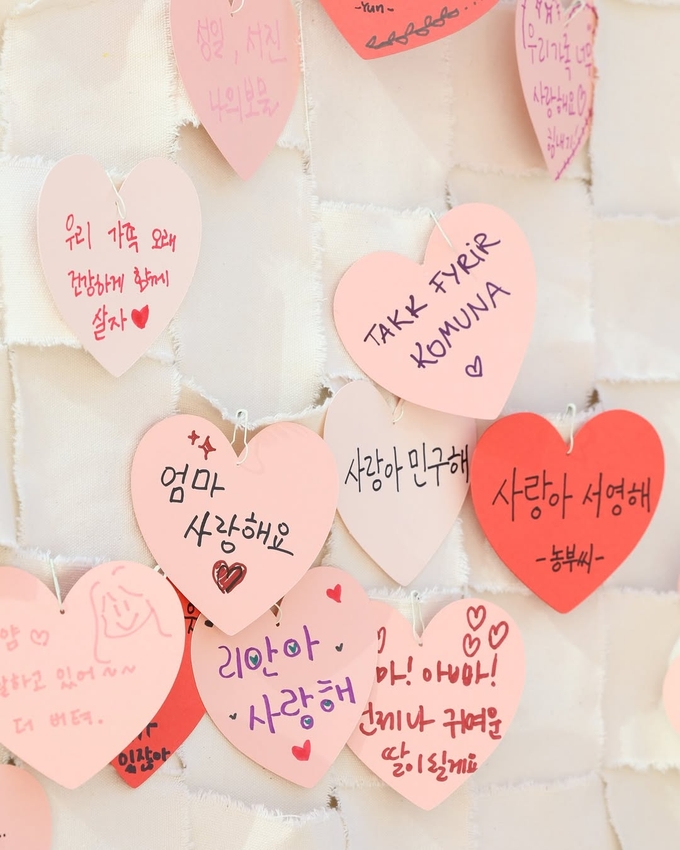 -Yun-
성일, 서진
나의보물
우리가족 너무
사랑해요♡
힘내자
우리 가족 오래
건강하게 함께
살자♥
TAKK FYRIR
KOMUNA
♡
엄마
사랑해요
사랑아 민구해
사랑아 서영해
-농부씨-
하고 있어~~
더 버텨.
있잖아
리안아
사랑해
아빠!
언제나 귀여운
딸이 될게요